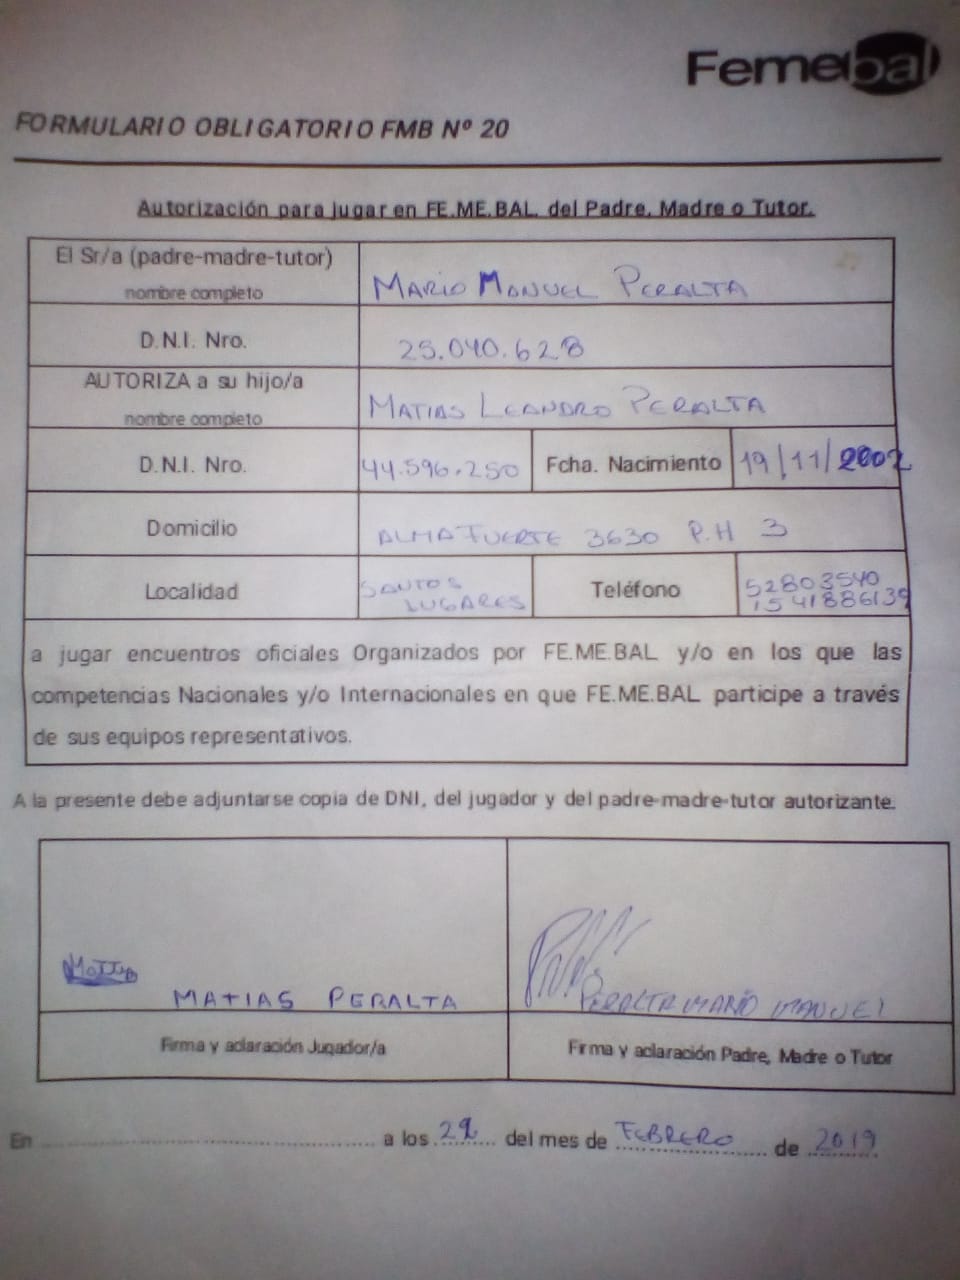 Femebal
FORMULARIO OBLIGATORIO FMB Nº 20
Autorización para jugar en FE.ME.BAL. del Padre, Madre o Tutor.
El Sr/a (padre-madre-tutor)
nombre completo
MARIO MANUEL PERALTA
D.N.I. Nro.
25.040.628
AUTORIZA a su hijo/a
nombre completo
MATIAS LEANDRO PERALTA
D.N.I. Nro. 44.596.250 Fcha. Nacimiento 19/11/2002
Domicilio ALMAFUERTE 3630 P.H 3
Localidad SANTOS LUGARES Teléfono 52803540
1541886139
a jugar encuentros oficiales Organizados por FE.ME.BAL y/o en los que las
competencias Nacionales y/o Internacionales en que FE.ME.BAL participe a través
de sus equipos representativos.
A la presente debe adjuntarse copia de DNI, del jugador y del padre-madre-tutor autorizante.
MATIAS PERALTA
PERALTA MARIO MANUEL
Firma y aclaración Jugador/a
Firma y aclaración Padre, Madre o Tutor
En ........ a los ... del mes de FEBRERO de 2019